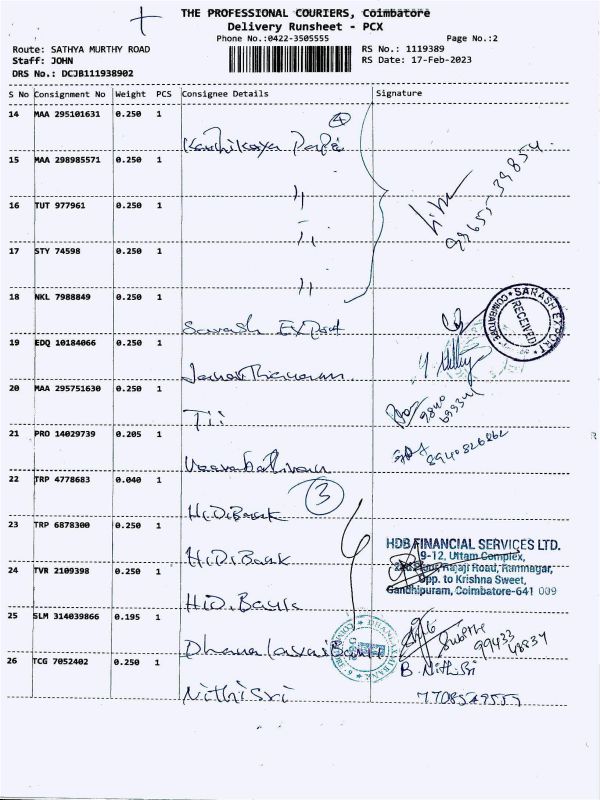 THE PROFESSIONAL COURIERS, Coimbatore
Delivery Runsheet - PCX
Phone No.:0422-3505555 Page No.:2
Route: SATHYA MURTHY ROAD RS No.: 1119389
Staff: JOHN RS Date: 17-Feb-2023
DRS No.: DCJB111938902
S No Consignment No Weight PCS Consignee Details Signature
14 MAA 295101631 0.250 1
4
15 MAA 298985571 0.250 1
16 TUT 977961 0.250 1
17 STY 74598 0.250 1
18 NKL 7988849 0.250 1
Sarash Export
SARASH EXPORT
RECEIVED
COIMBATORE
19 EDQ 10184066 0.250 1
20 MAA 295751630 0.250 1
Tii
21 PRO 14029739 0.205 1
8940826862
22 TRP 4778683 0.040 1
3
H.D.Bank
23 TRP 6878300 0.250 1
H.D.Bank
24 TVR 2109398 0.250 1
H.D.Bank
HDB FINANCIAL SERVICES LTD.
9-12, Uttam Complex,
Rajaji Road, Ramnagar,
Opp. to Krishna Sweet,
Gandhipuram, Coimbatore-641 009
25 SLM 314039866 0.195 1
26 TCG 7052402 0.250 1
B. Nithisri
Nithisri